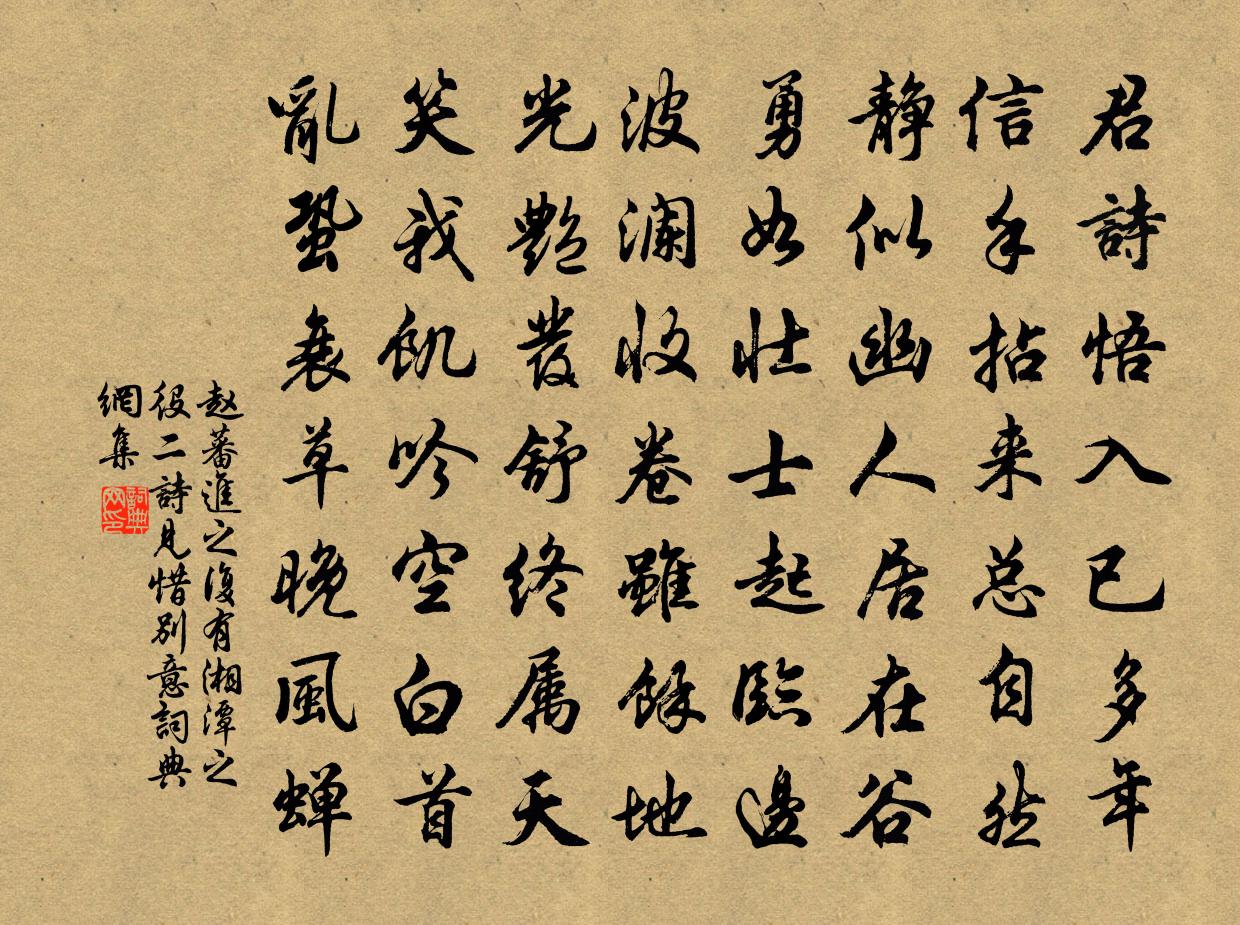 君詩悟入已多年
信手拈来总自然
静似幽人居在谷
勇如壮士起臨邊
波澜收卷雖餘地
光艷發舒终属天
笑我飢吟空白首
亂蛩衰草晚風蝉
赵蕃進之復有湘潭之
役二詩見惜别意詞典
網集
詞典网印